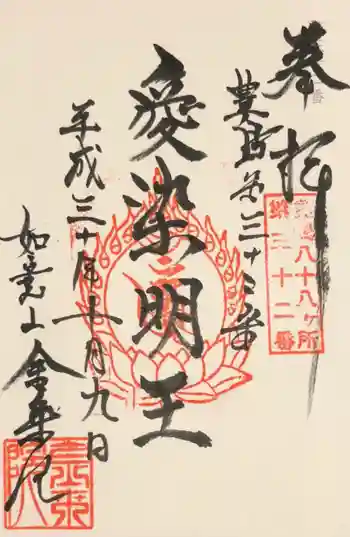 奉拝
豊島第三十二番
愛染明王
平成三十年七月九日
如意山金乗院
豊島八十八ヶ所
第三十二番